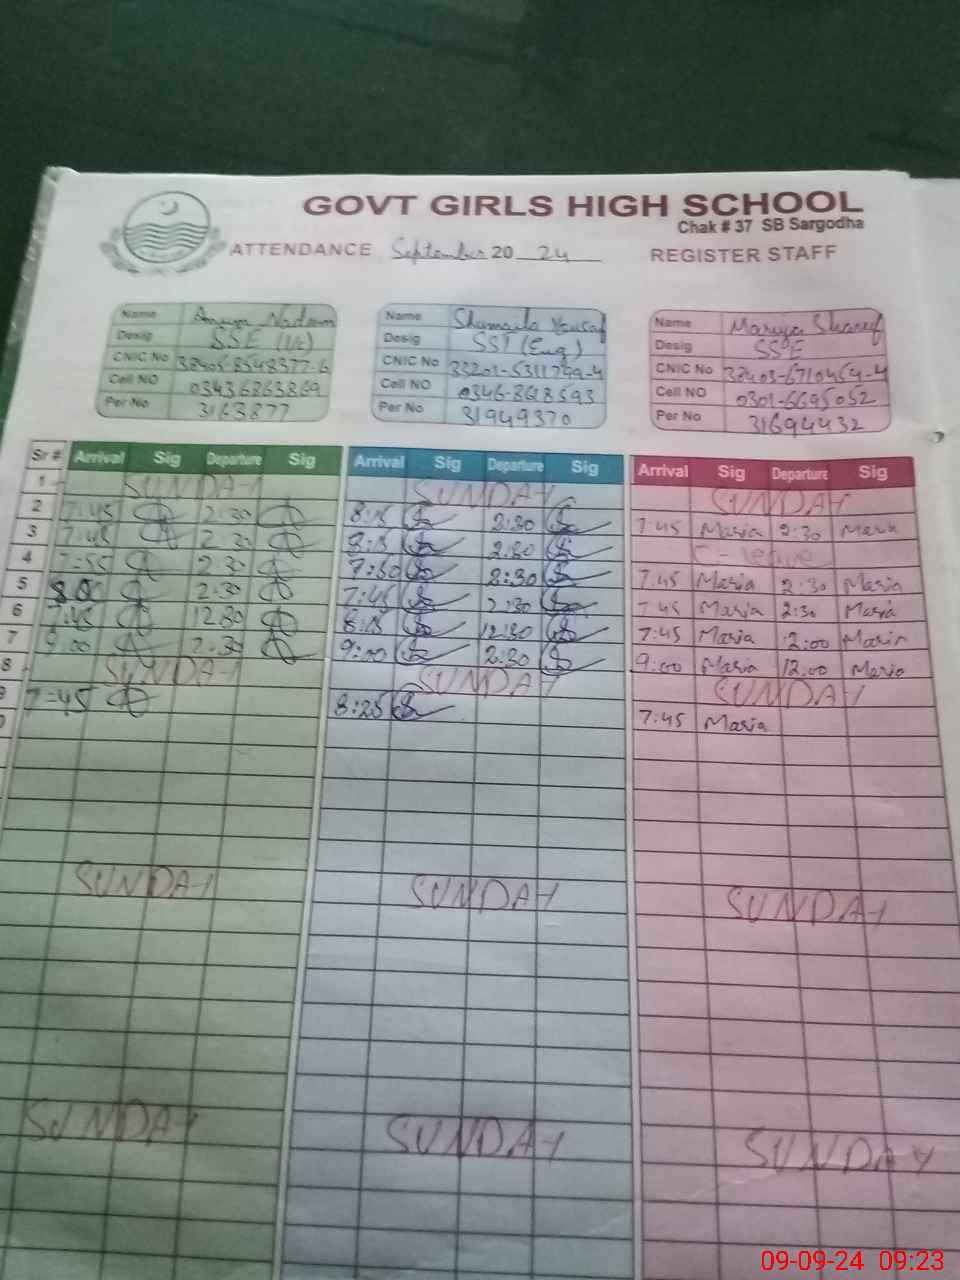 GOVT GIRLS HIGH SCHOOL
Chak # 37 SB Sargodha
ATTENDANCE September 20 24 REGISTER STAFF
Name Nadeem Name Shumaila Yousaf Name Mariya Sharif
Desig SSE (Vc) Desig SST (Eng) Desig SSE
CNIC No 38405-8548377-6 CNIC No 33201-5311799-4 CNIC No 38403-6710454-4
Cell NO 03436863869 Cell NO 0346-8618593 Cell NO 0301-6695052
Per No 3163877 Per No 31949370 Per No 31694432
Sr # Arrival Sig Departure Sig Arrival Sig Departure Sig Arrival Sig Departure Sig
1 SUNDAY SUNDAY SUNDAY
2 7:45 2:30 8:15 2:30 7:45 Maria 2:30 Maria
3 7:45 2:30 8:15 2:30 C-leave
4 7:55 2:30 7:50 2:30 7:45 Maria 2:30 Maria
5 2:30 7:45 2:30 7:45 Maria 2:30 Maria
6 7:45 12:30 8:15 12:30 7:45 Maria 12:00 Maria
7 9:00 2:30 9:00 2:30 9:00 Maria 12:00 Maria
8 SUNDAY SUNDAY SUNDAY
9 7:45 8:25 7:45 Maria
SUNDAY SUNDAY SUNDAY
SUNDAY SUNDAY SUNDAY
09-09-24 09:23